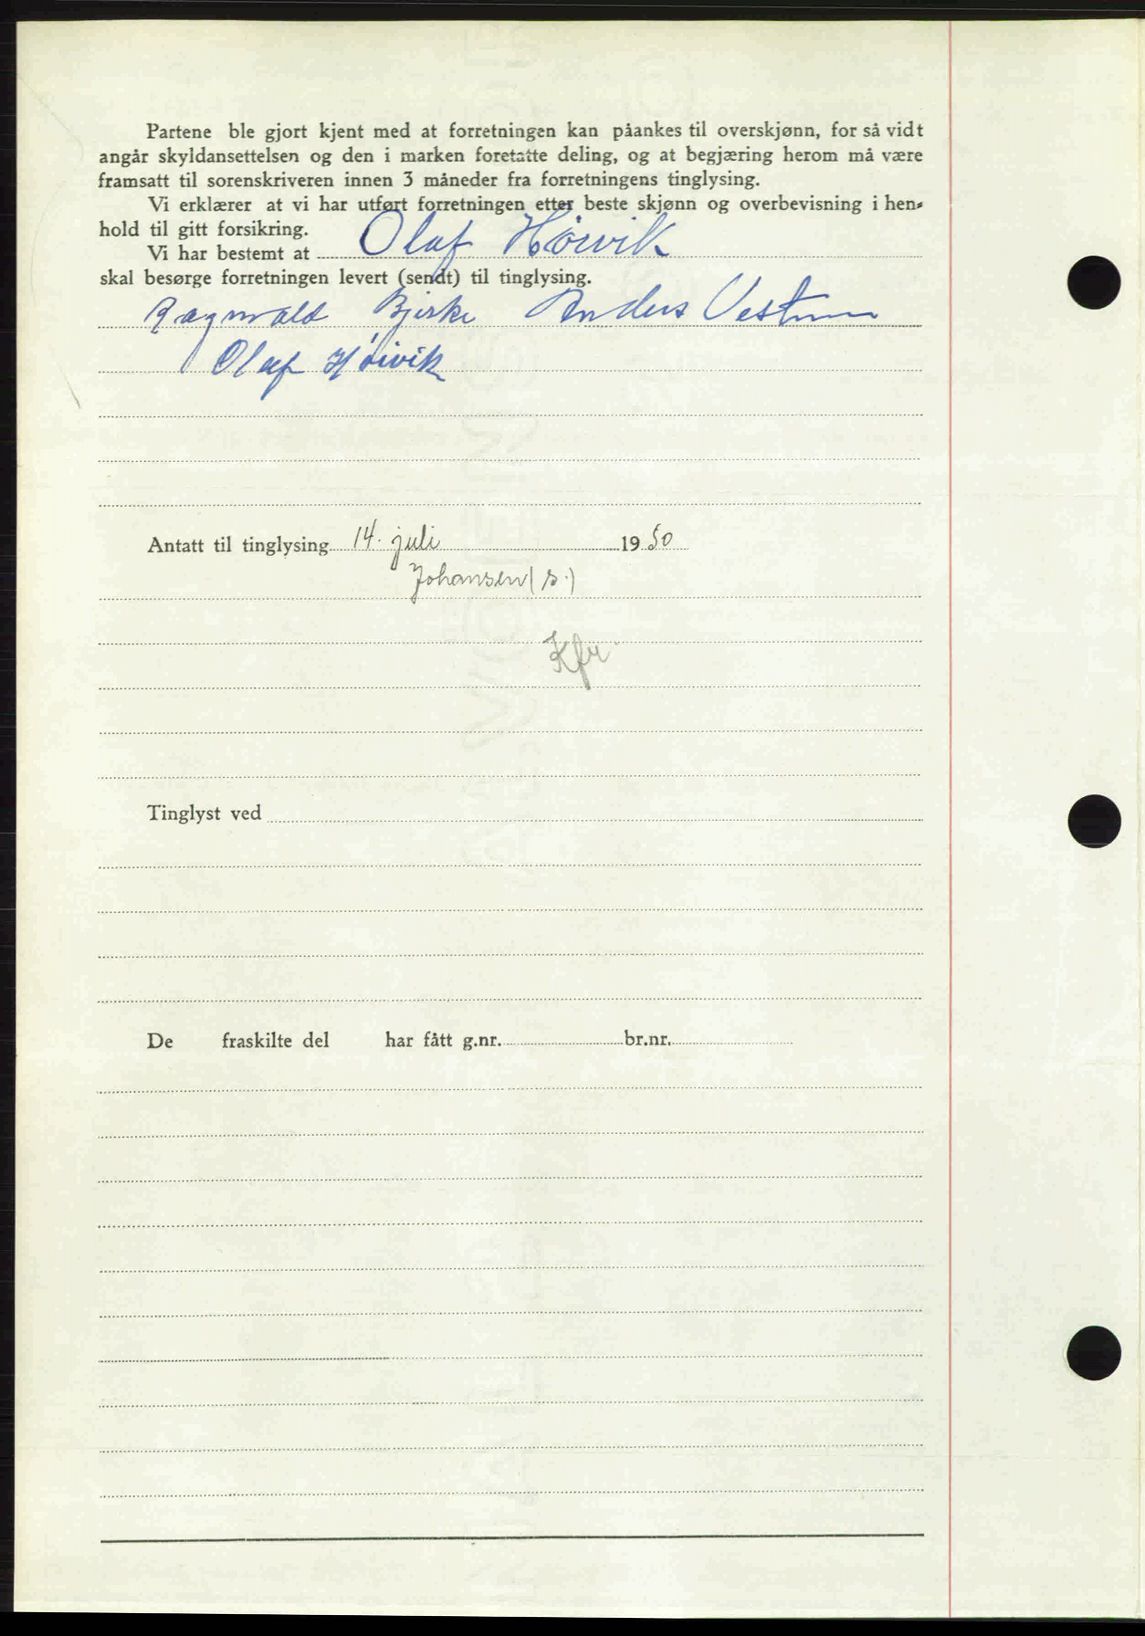 Partene ble gjort kjent med at forretningen kan påankes til overskjønn, for så vidt
angår skyldansettelsen og den i marken foretatte deling, og at begjæring herom må være
framsatt til sorenskriveren innen 3 måneder fra forretningens tinglysing.
Vi erklærer at vi har utført forretningen etter beste skjønn og overbevisning i hen-
hold til gitt forsikring.
Vi har bestemt at Olaf Høivik
skal besørge forretningen levert (sendt) til tinglysing.
Ragnvald Bjerke Anders
Olaf Høivik
Antatt til tinglysing 14. juli 1950
Johansen (s.)
Kfr
Tinglyst ved
De fraskilte del har fått g.nr. br.nr.